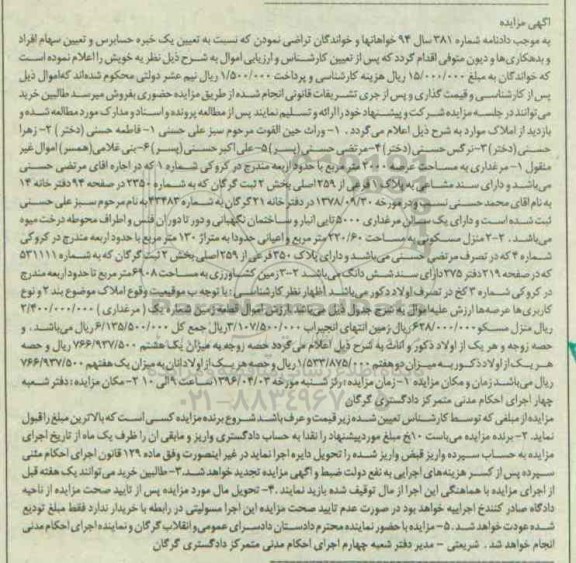 آگهی مزایده
به موجب دادنامه شماره ۳۸۱ سال ۹۴ خواهانها و خواندگان تراضی نمودن که نسبت به تعیین یک خبره حسابرس و تعیین سهام افراد
و بدهکاری‌ها و دیون متوفی اقدام گردد که پس از تعیین کارشناس و ارزیابی اموال به شرح ذیل نظریه خویش را اعلام نموده است
که خواندگان به مبلغ ۱۵/۰۰۰/۰۰۰ ریال هزینه کارشناسی و پرداخت ۱/۵۰۰/۰۰۰ ریال نیم عشر دولتی محکوم شده‌اند که اموال ذیل
پس از کارشناسی و قیمت گذاری و پس از جری تشریفات قانونی انجام شده از طریق مزایده حضوری بفروش میرسد طالبین خرید
می توانند در جلسه مزایده شرکت و پیشنهاد خود را ارائه و تسلیم نمایند پس از مطالعه پرونده و اسناد و مدارک مورد مطالعه شده و
بازدید از املاک موارد به شرح ذیل اعلام می گردد . ۱- وراث حین الفوت مرحوم سبز علی حسنی ۱- فاطمه حسنی (دختر) ۲- زهرا
حسنی (دختر) ۳- نرگس حسنی (دختر) ۴- مرتضی حسنی (پسر) ۵- علی اکبر حسنی (پسر) ۶- بنی غلامی (همسر) اموال غیر
منقول ۱- مرغداری به مساحت عرصه متر مربع با حدود اربعه مندرج در کروکی شماره ۱ که در اجاره اقای مرتضی حسنی
می‌باشد و دارای سند مشاعی به پلاک ۱ فرعی از ۲۵۹ اصلی بخش ۲ ثبت گرگان که به شماره ۲۳۵۰ در صفحه ۹۴ دفتر خانه ۱۴
به نام اقای محمد حسنی نسب و در مورخه ۱۳۷۸/۰۹/۳۰ در دفتر خانه ۲۱ گرگان به شماره ۴۳۴۸۳ به نام مرحوم سبز علی حسنی
ثبت شده است و دارای یک سالن مرغداری ۵۰۰۰ تایی انبار و ساختمان نگهبانی و دور تا دوران فنس و اطراف محوطه درخت میوه
می‌باشد . ۲-۲ منزل مسکونی به مساحت ۲۲۰/۶۰ متر مربع و اعیانی حدودا به متراژ ۱۳۰ متر مربع با حدود اربعه مندرج در کروکی
شماره ۴ که در تصرف مرتضی حسنی می‌باشد و دارای پلاک ۳۵۰ فرعی از ۲۵۹ اصلی بخش ۲ ثبت گرگان که به شماره ۵۳۱۱۱۱
که در صفحه ۲۱۹ دفتر ۲۷۵ دارای سند شش دانگ می‌باشد ۲-۳ زمین کشاورزی به مساحت ۶۹۰۸ متر مربع تا حدود اربعه مندرج
در کروکی شماره ۳ کج در تصرف اولاد ذکور می‌باشد. اظهار نظر کارشناسی: با توجه ب موقعیت وقوع املاک موضوع بند ۲ و نوع
کاربری‌ها عرصه‌ها ارزش علیه اموال به شرح جدول ذیل می‌باشد. ارزش اموال قطعه زمین شماره یک (مرغداری) ۲/۴۰۰/۰۰۰/۰۰۰
ریال منزل مسکو ۶۲۸/۰۰۰/۰۰۰ ریال زمین انتهای انجیراب ۳/۱۰۷/۵۰۰/۰۰۰ ریال جمع کل ۶/۱۳۵/۵۰۰/۰۰۰ ریال می‌باشد. و
حصه زوجه و هر یک از اولاد ذکور و اناث به شرح ذیل اعلام می‌گردد حصه زوجه به میزان یک هشتم ۷۶۶/۹۳۷/۵۰۰ ریال و حصه
هر یک از اولاد ذکور به میزان دو هفتم ۱/۵۳۳/۸۷۵/۰۰۰ ریال و حصه هر یک از اولاد اناث به میزان یک هفتهم ۷۶۶/۹۳۷/۵۰۰
ریال می‌باشد زمان و مکان مزایده ۱- زمان مزایده: رئز شنبه مورخه ۱۳۹۶/۰۴/۰۳ ساعت ۹ الی ۱۰ ۲- مکان مزایده: دفتر شعبه
چهار اجرای احکام مدنی متمرکز دادگستری گرگان
مزایده از مبلغی که توسط کارشناس تعیین شده زیر قیمت و عرف باشد شروع برنده مزایده کسی است که بالاترین مبلغ را قبول
نماید. ۲- برنده مزایده می‌باست ۱۰خ مبلغ مورد پیشنهاد را نقدا به حساب دادگستری واریز و مابقی ان را ظرف یک ماه از تاریخ اجرای
مزایده به حساب سپرده واریز قبض واریز شده را تحویل دایره اجرا نماید در غیر اینصورت وفق ماده ۱۲۹ قانون اجرای احکام مثنی
سپرده پس از کسر هزینه‌های اجرایی به نفع دولت ضبط و آگهی مزایده تجدید خواهد شد. ۳- طالبین خرید می‌توانند یک هفته قبل
از اجرای مزایده با هماهنگی این اجرا از مال توقیف شده بازید نمایند. ۴- تحویل مال مورد مزایده پس از تایید صحت مزایده از ناحیه
دادگاه صادر کنندخ اجراییه خواهد بود در صورت عدم تایید صحت مزایده این اجرا مسولیتی در رابطه با خریدار ندارد فقط مبلغ تودیع
شده عودت خواهد شد. ۵- مزایده با حضور نماینده محترم دادستان دادسرای عمومی و انقلاب گرگان و نماینده اجرای احکام مدنی
انجام خواهد شد . شریعتی - مدیر دفتر شعبه چهارم اجرای احکام مدنی متمرکز دادگستری گرگان
۰۲۱-۸۸۳۴۹۶۷۰